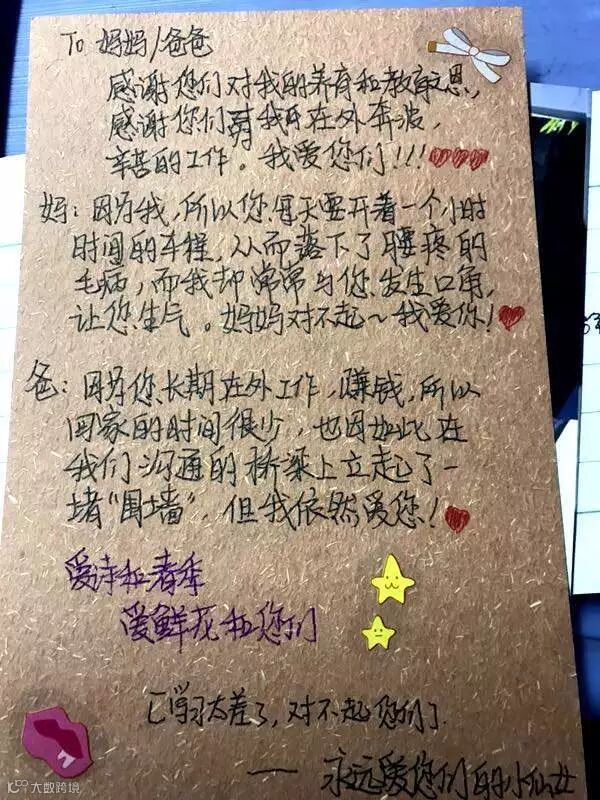 To 妈妈/爸爸
感谢您们对我的养育和教育之恩,
感谢您们为我而在外奔波,
辛苦的工作。我爱您们!!!
妈:因为我,所以您每天要开着一个小时
时间的车程,从而落下了腰疼的
毛病,而我却常常与您发生口角,
让您生气。妈妈对不起~我爱你!
爸:因为您长期在外工作,赚钱,所以
回家的时间很少,也因如此在
我们沟通的桥梁上立起了一
堵“围墙”,但我依然爱您!
爱诗和春季
爱鲜花和您们
学习太差了,对不起您们
——永远爱您们的小仙女
大数跨境